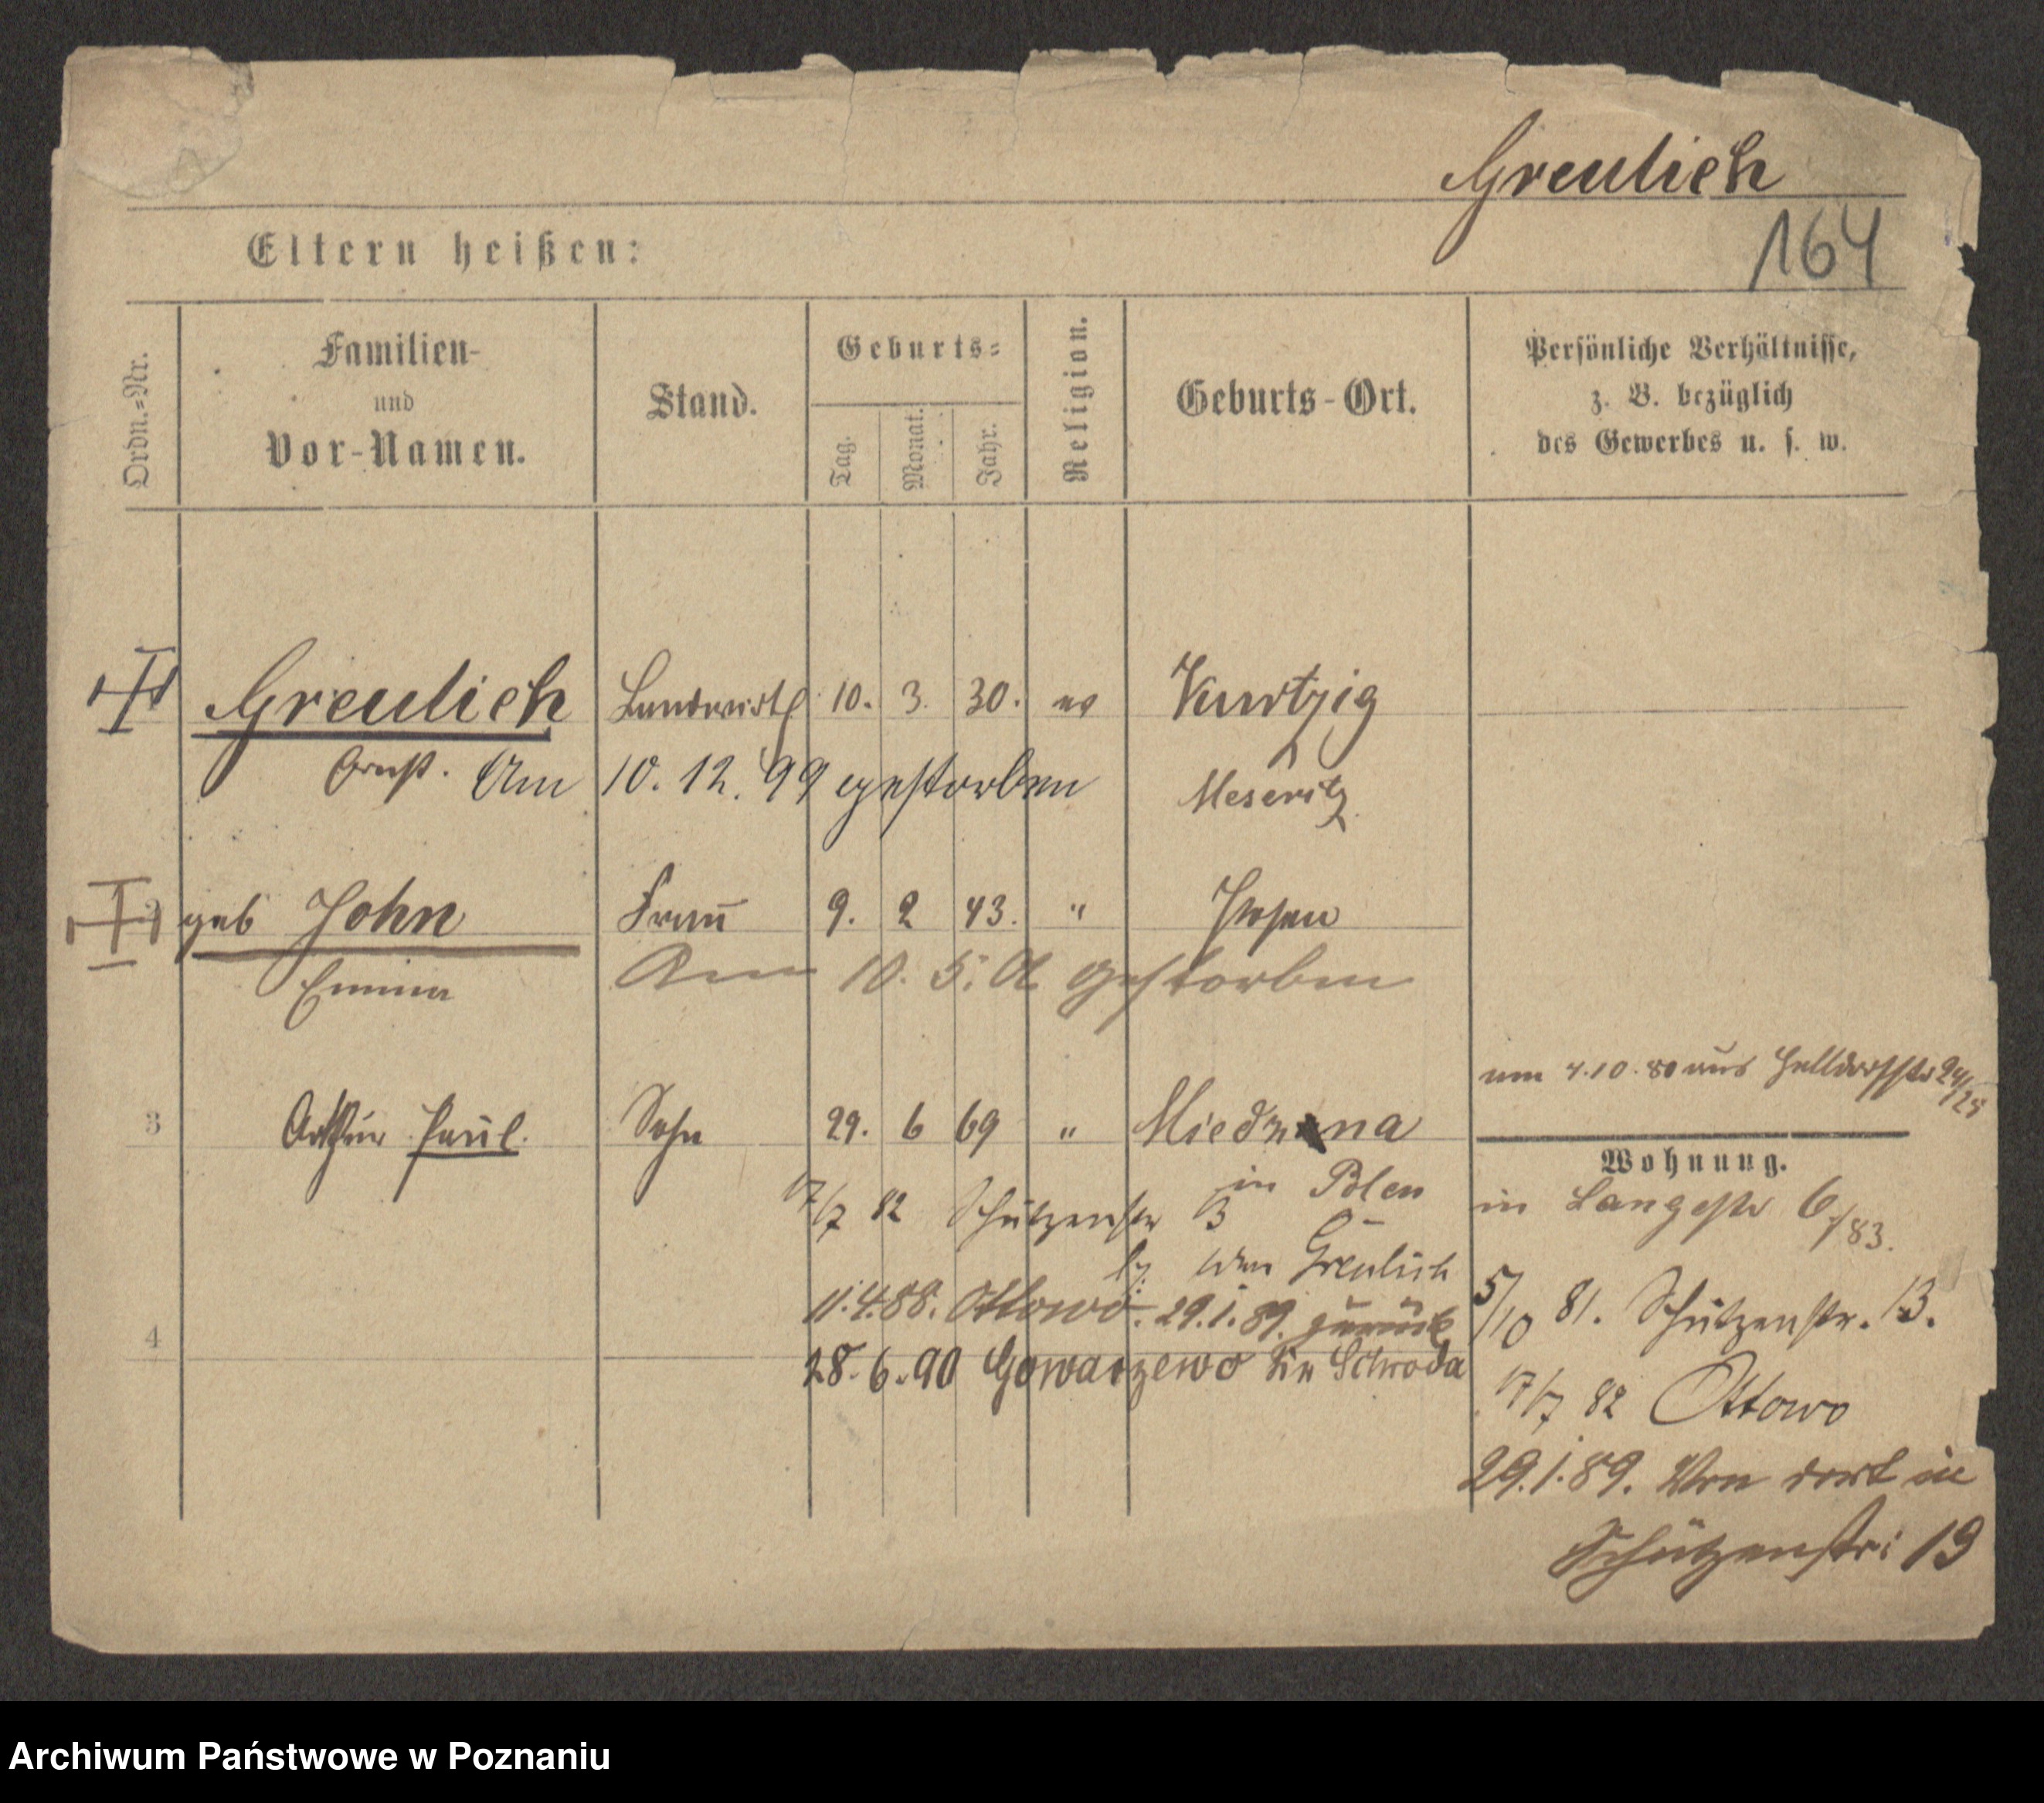 Greulich
164
Eltern heißen:
Ordn.=Nr.
Familien-
und
Vor-Namen.
Stand.
Geburts=
Tag.
Monat.
Jahr.
Religion.
Geburts-Ort.
Persönliche Verhältnisse,
z. B. bezüglich
des Gewerbes u. s. w.
Greulich Landwirth 10. 3. 30. ev Kurtzig
Ernst. Am 10. 12. 99 gestorben Meseritz
geb John Frau 9. 2 43. " Posen
Emma Am 10. 5. gestorben
um 4.10.80 aus 24/25
3 Arthur Paul. Sohn 29. 6 69 " na
in Polen
Wohnung.
in Langestr 6 /83.
17/7 82 Schützenstr 13
bei Wwe Greulich
11.4.88. Ottowo. 29.1.89. zurück
5/10 81. Schützenstr. 13.
4
28.6.90 Gowarzewo Kr Schroda
17/7 82 Ottowo
29.1.89. Von dort in
Schützenstr: 19
Archiwum Państwowe w Poznaniu